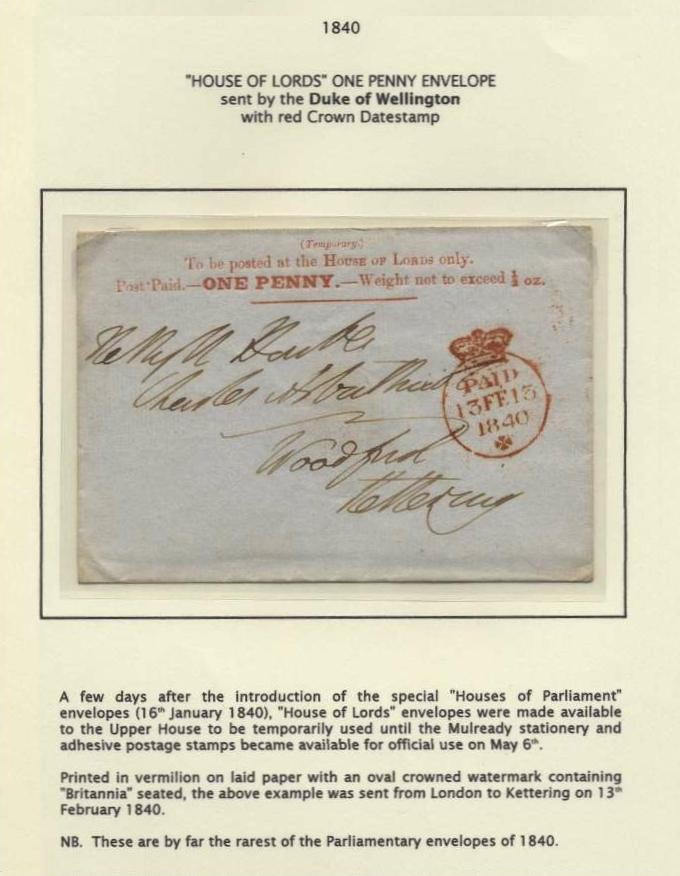 1840
"HOUSE OF LORDS" ONE PENNY ENVELOPE
sent by the Duke of Wellington
with red Crown Datestamp
(Temporary.)
To be posted at the HOUSE OF LORDS only.
Post Paid.—ONE PENNY.—Weight not to exceed ½ oz.
Charles Arbuthnot
Woodford
Kettering
PAID
13 FE 13
1840
A few days after the introduction of the special "Houses of Parliament"
envelopes (16th January 1840), "House of Lords" envelopes were made available
to the Upper House to be temporarily used until the Mulready stationery and
adhesive postage stamps became available for official use on May 6th.
Printed in vermilion on laid paper with an oval crowned watermark containing
"Britannia" seated, the above example was sent from London to Kettering on 13th
February 1840.
NB. These are by far the rarest of the Parliamentary envelopes of 1840.